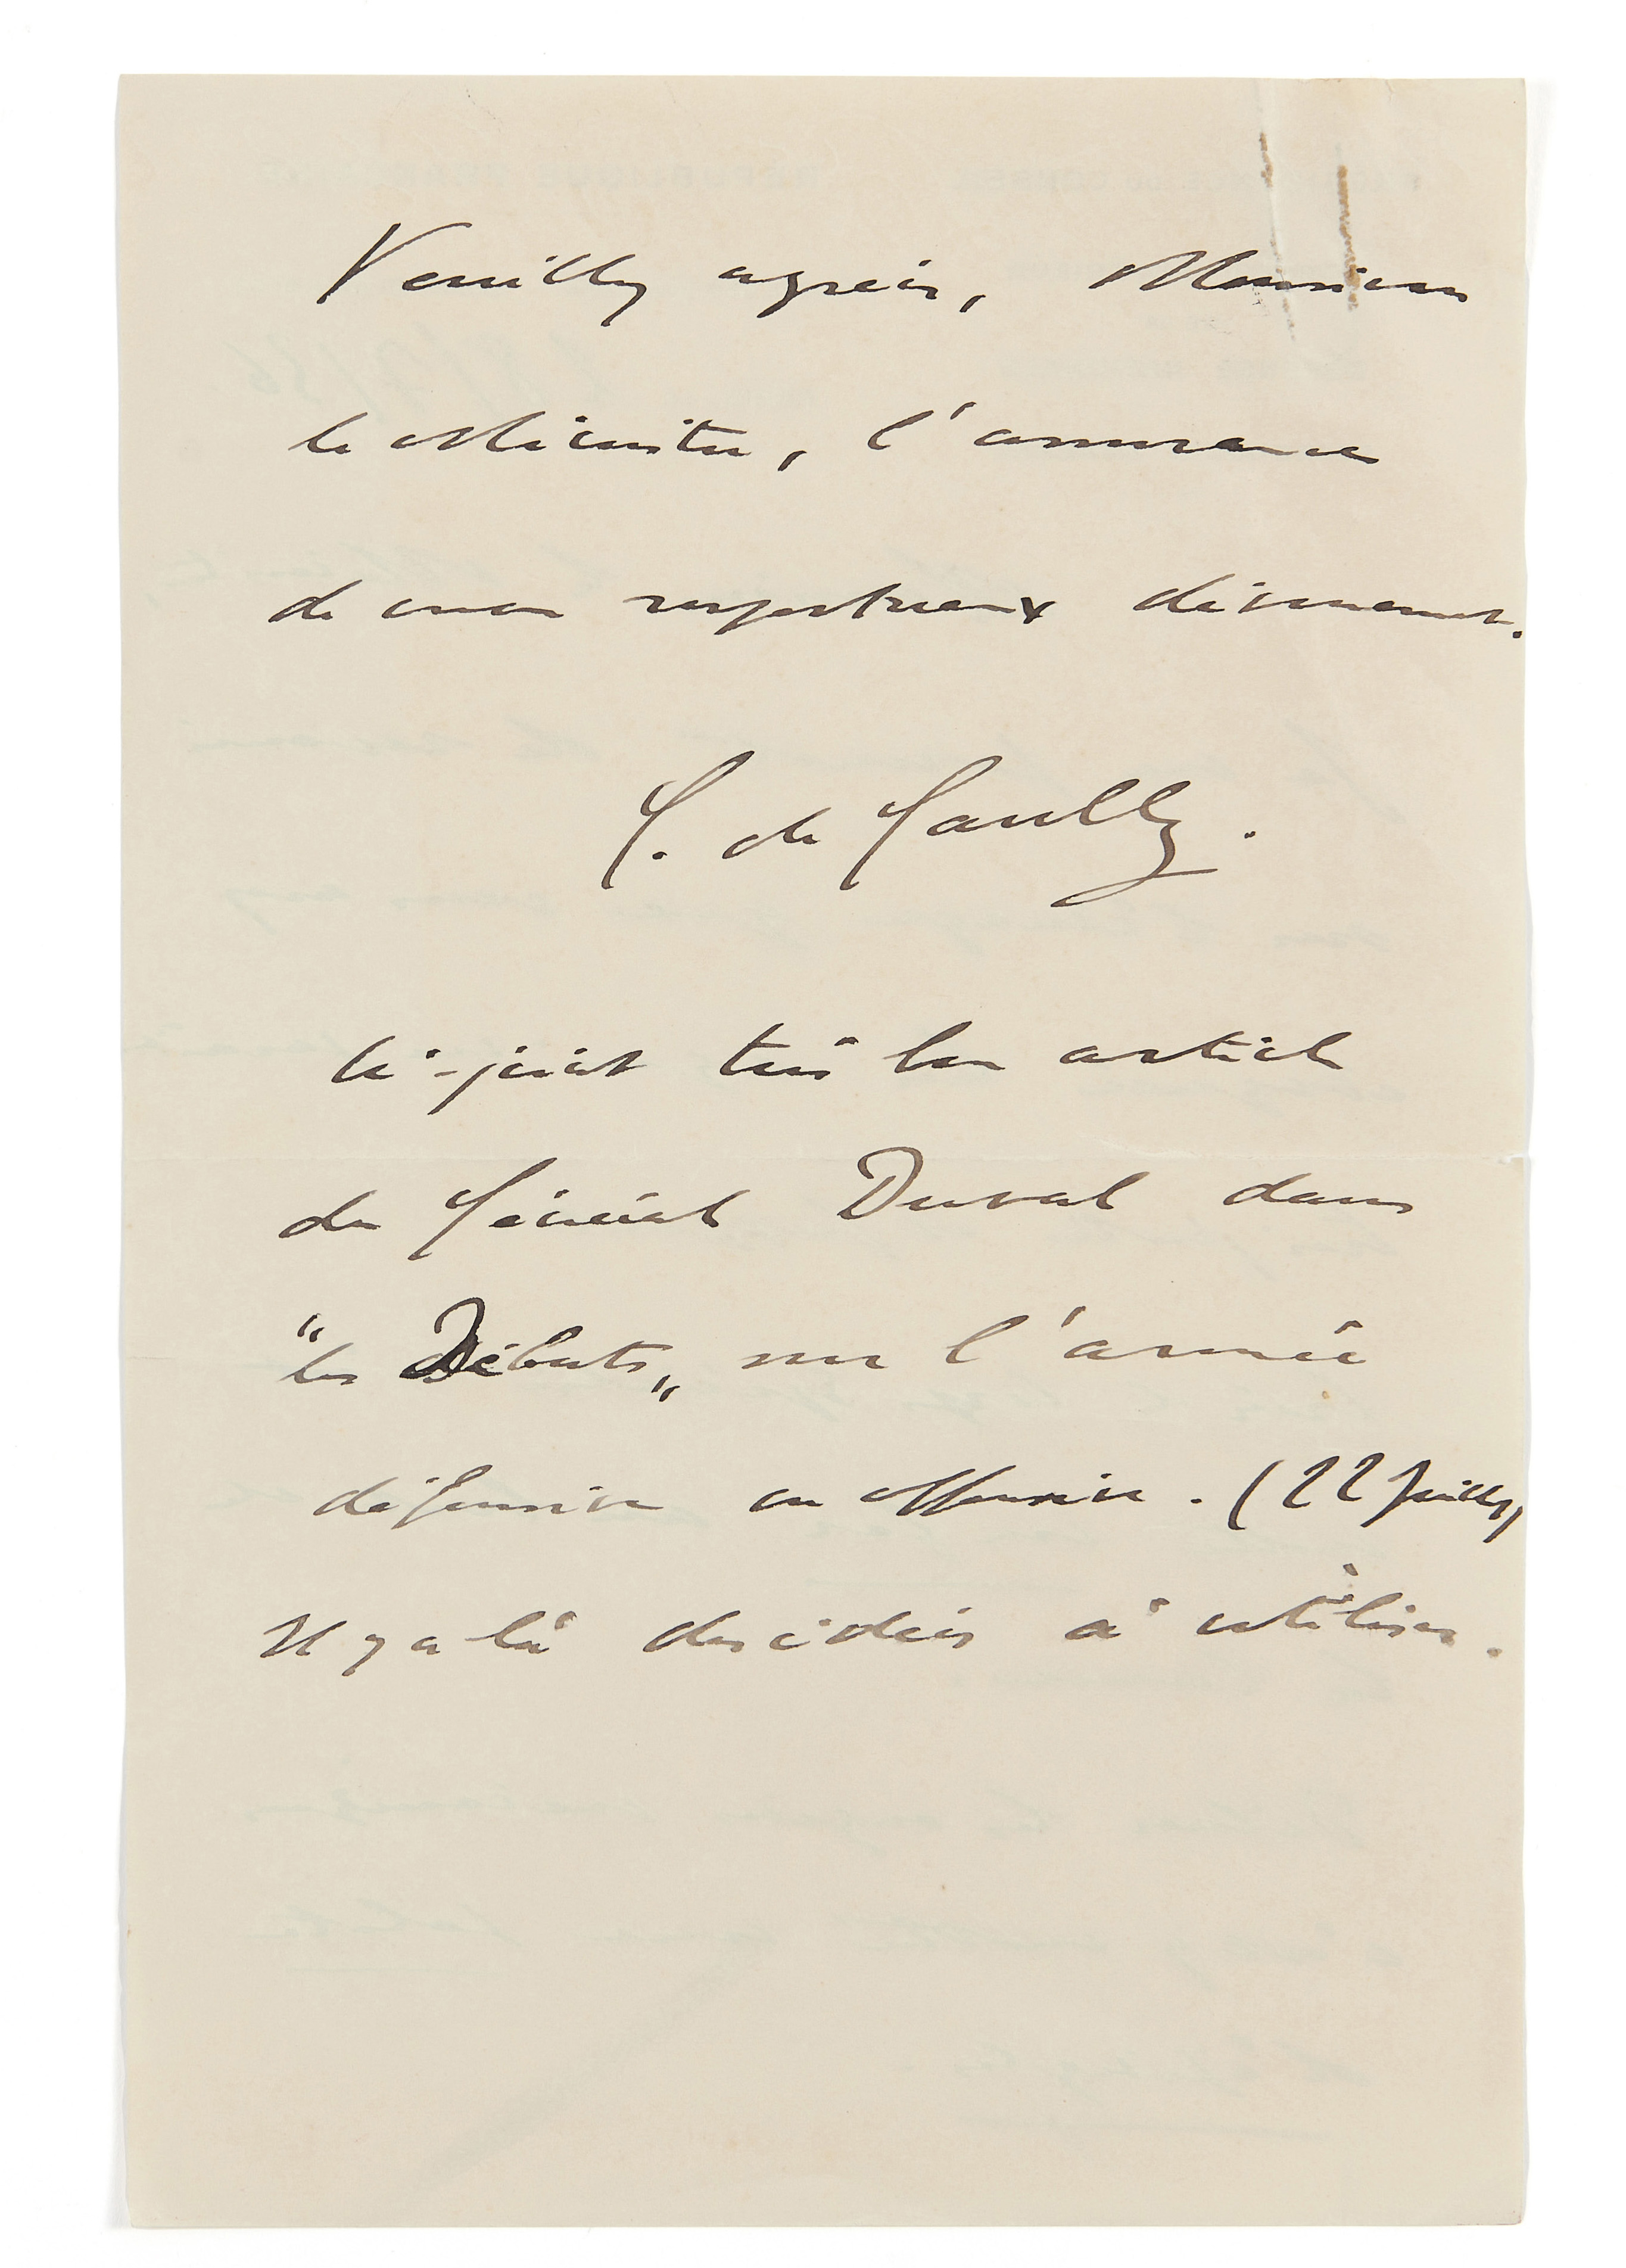 Veuillez agréer, Monsieur
le Ministre, l'assurance
de mon respectueux dévouement.
C. de Gaulle.
Ci-joint très bon article
du Général Duval dans
"les Débats" sur l'armée
défensive ou offensive. (22 Juillet)
Il y a là des idées à utiliser.